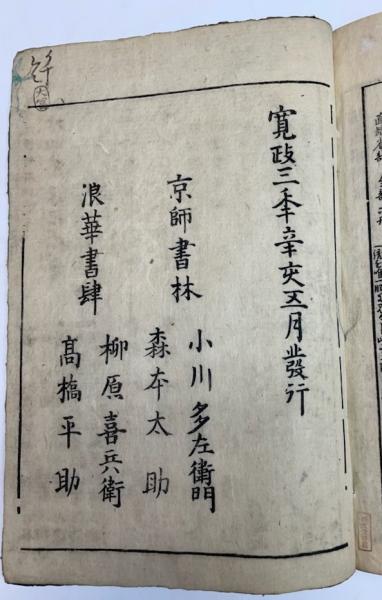 寬政三秊辛亥五月發行
京師書林
小川多左衛門
森夲太助
浪華書肆
柳原喜兵衛
髙橋平助